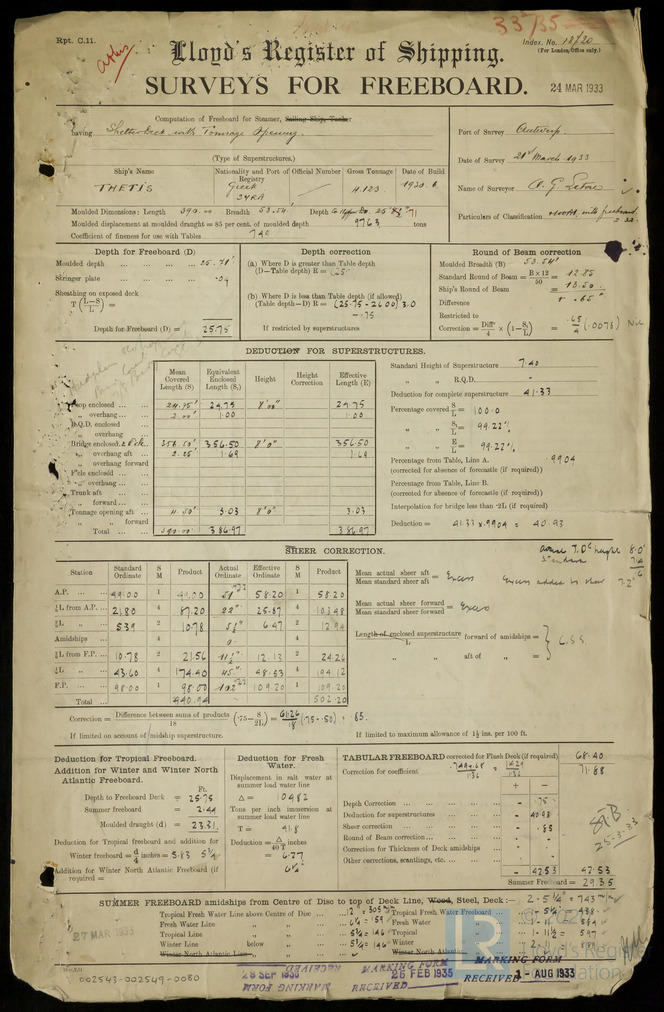 Rpt. C.11.
33735
Index. No. 12720
(For London Office only.)
Lloyd's Register of Shipping.
SURVEYS FOR FREEBOARD.
24 MAR 1933
Computation of Freeboard for Steamer, Sailing Ship, Tanker
having Shelterdeck with Tonnage Opening.
(Type of Superstructures.)
Port of Survey Antwerp
Date of Survey 21st March 1933
Name of Surveyor
Particulars of Classification +100A1. with freeboard
Ship's Name
Nationality and Port of Registry
Official Number
Gross Tonnage
Date of Build
THETIS
Greek
SYRA
4123.
1930. 6.
Moulded Dimensions: Length 390.00 Breadth 53.54 Depth
Moulded displacement at moulded draught = 85 per cent. of moulded depth 9763 tons
Coefficient of fineness for use with Tables .740
Depth for Freeboard (D)
Moulded depth ... 25.71'
Stringer plate ... .04
Sheathing on exposed deck
T (L−S / L) =
Depth for Freeboard (D) = 25.75
Depth correction
(a) Where D is greater than Table depth
(D−Table depth) R =
(b) Where D is less than Table depth (if allowed)
(Table depth−D) R = (25.75 - 26.00) 3.0
= -.75
If restricted by superstructures
Round of Beam correction
Moulded Breadth (B) 53.54'
Standard Round of Beam = B × 12 / 50 = 12.85
Ship's Round of Beam = 13.50
Difference + .65"
Restricted to
Correction = Diff / 4 × (1−S₁/L) = .65 / 4 (.0078) Nil
DEDUCTION FOR SUPERSTRUCTURES.
Mean Covered Length (S)
Equivalent Enclosed Length (S₁)
Height
Height Correction
Effective Length (E)
Poop enclosed ... 24.75' 24.75 8'00" 24.75
„ overhang ... 2.00' 1.00 1.00
R.Q.D. enclosed
„ overhang
Bridge enclosed 356.50' 356.50 8'0" 356.50
„ overhang aft ... 2.25' 1.69 1.69
„ overhang forward
F'cle enclosed ...
„ overhang ...
Trunk aft ...
„ forward ...
Tonnage opening aft 4.50' 3.03 8'0" 3.03
„ „ forward
Total ... 390.00' 386.97 386.97
Standard Height of Superstructure 7.40
„ „ R.Q.D. -
Deduction for complete superstructure 41.33
Percentage covered S/L = 100.0
„ „ S₁/L = 99.22%
„ „ E/L = 99.22%
Percentage from Table, Line A. .9904
(corrected for absence of forecastle (if required))
Percentage from Table, Line B.
(corrected for absence of forecastle (if required))
Interpolation for bridge less than ·2L (if required)
Deduction = 41.33 × .9904 = 40.93
SHEER CORRECTION.
Station
Standard Ordinate
S M
Product
Actual Ordinate
Effective Ordinate
S M
Product
A.P. ... 49.00 1 49.00 51" 58.20 1 58.20
⅙L from A.P. ... 21.80 4 87.20 22" 25.87 4 103.48
⅓L „ 5.39 2 10.78 5½" 6.47 2 12.94
Amidships 4 0 4
⅓L from F.P. ... 10.78 2 21.56 11½" 12.13 2 24.26
⅙L „ 43.60 4 174.40 45" 48.53 4 194.12
F.P. ... 98.00 1 98.00 102" 109.20 1 109.20
Total ... 440.94 502.20
Mean actual sheer aft / Mean standard sheer aft = Excess
Excess added to sheer 7.2"
Mean actual sheer forward / Mean standard sheer forward = Excess
Length of enclosed superstructure / L forward of amidships =
„ „ aft of „ =
C.S.S.
Correction = Difference between sums of products / 18 (·75 − S/2L) = 61.26 / 18 (.75 - .50) = .85.
If limited on account of midship superstructure.
If limited to maximum allowance of 1½ ins. per 100 ft.
Deduction for Tropical Freeboard.
Addition for Winter and Winter North Atlantic Freeboard.
Ft.
Depth to Freeboard Deck = 25.75
Summer freeboard = 2.44
Moulded draught (d) = 23.31
Deduction for Tropical freeboard and addition for
Winter freeboard = d/4 inches = 5.83 5¾
Addition for Winter North Atlantic Freeboard (if required) =
Deduction for Fresh Water.
Displacement in salt water at summer load water line
Δ = 10482
Tons per inch immersion at summer load water line
T = 41.8
Deduction = Δ / 40 T inches
= 6.27
6¼"
TABULAR FREEBOARD corrected for Flush Deck (if required) 68.40
Correction for coefficient .740+.68 / 1.36 = 1.420 / 1.36 71.88
+ −
Depth Correction ... .75
Deduction for superstructures ... 40.93
Sheer correction ... .85
Round of Beam correction ... - -
Correction for Thickness of Deck amidships - -
Other corrections, scantlings, etc. ... - -
42.53 42.53
Summer Freeboard = 29.35
25-3-33
SUMMER FREEBOARD amidships from Centre of Disc to top of Deck Line, Wood, Steel, Deck:— 2 - 5¼" = 743
Tropical Fresh Water Line above Centre of Disc ... 12" = 305
Fresh Water Line „ „ ... 6¼ = 159
Tropical Line „ „ ... 5¾ = 146
Winter Line below „ ... 5¾ = 146
Winter North Atlantic Line „ „
Tropical Fresh Water Freeboard ... 1 - 5¼" = 438
Fresh Water „ ...
Tropical „ ... 1 - 11½ = 597
Winter „ ...
Winter North Atlantic „
27 MAR 1933
002543-002549-0080
MARKING FORM
RECEIVED
MARKING FORM
26 FEB 1935
RECEIVED
MARKING FORM
RECEIVED 1 - AUG 1933
LR
Lloyd's Register
Foundation